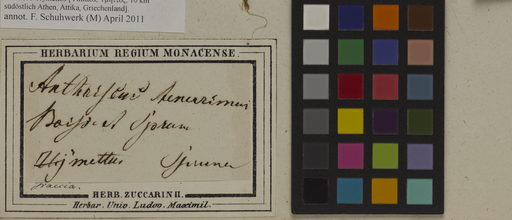 südöstlich Athen, Attika, Griechenland].
annot. F. Schuhwerk (M) April 2011
HERBARIUM REGIUM MONACENSE
Anthriscus tenerrima
Boiss et Sprun
Hymettus Spruner
Graecia.
HERB. ZUCCARINII.
Herbar. Univ. Ludov. Maximil.